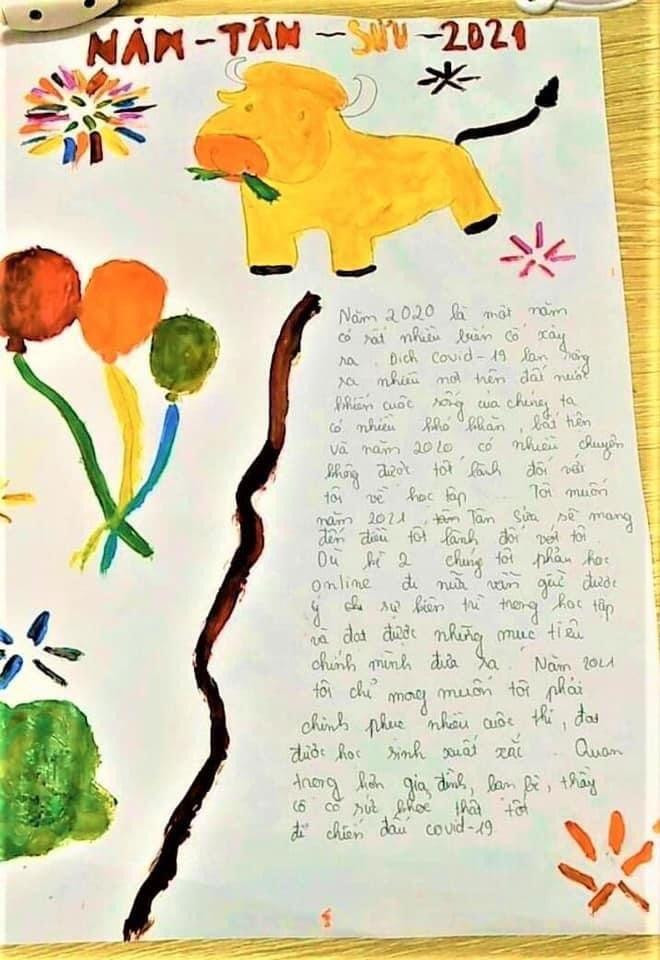 NĂM - TÂN - SỬU - 2021
Năm 2020 là một năm
có rất nhiều biến cố xảy
ra. Dịch covid-19 lan rộng
ra nhiều nơi trên đất nước
khiến cuộc sống của chúng ta
có nhiều khó khăn, bất tiện
và năm 2020 có nhiều chuyện
không được tốt lành đối với
tôi về học tập ... Tôi muốn
năm 2021, Tân Sửu sẽ mang
đến điều tốt lành đối với tôi.
Dù kì 2 chúng tôi phải học
online đi nữa vẫn giữ được
ý chí sự kiên trì trong học tập
và đạt được những mục tiêu
chính mình đưa ra. Năm 2021
tôi chỉ mong muốn tôi phải
chinh phục nhiều cuộc thi, đạt
được học sinh xuất xắc ... Quan
trọng hơn gia đình, bạn bè, thầy
cô có sức khoẻ thật tốt
để chiến đấu covid-19